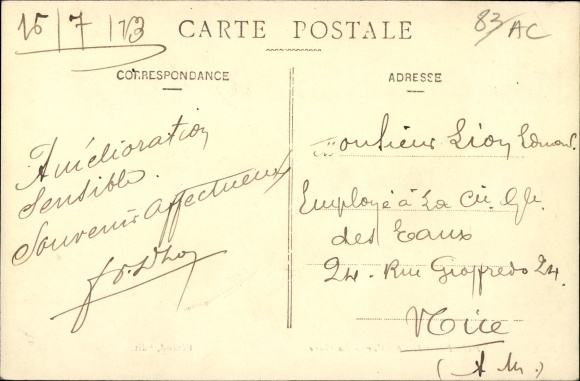 15/7/13
CARTE POSTALE
83/AC
CORRESPONDANCE
ADRESSE
Amélioration
Sensible.
Souvenir affectueux
Monsieur Lion Edmond.
Employé à La Cie. Gle.
des Eaux
24. Rue Gioffredo 24.
Nice
(A. M.)